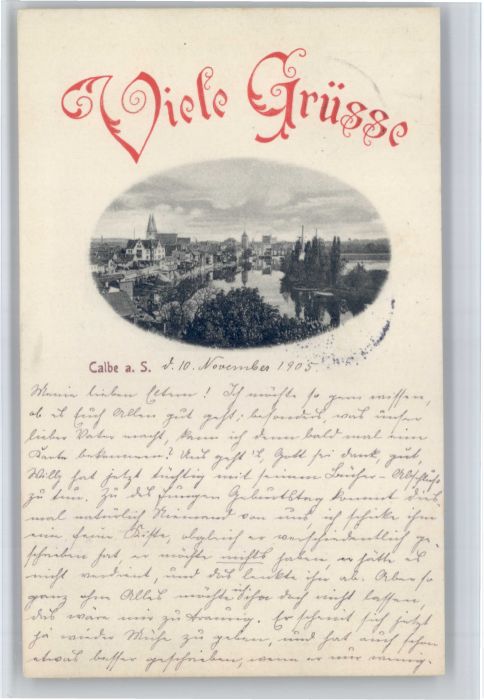 Viele Grüsse
Calbe a. S. d. 10. November 1905.
Meine lieben Eltern! Ich möchte so gern wissen,
ob es Euch Allen gut geht; besonders, was unser
lieber Vater macht, kann ich denn bald mal eine
Karte bekommen? Uns geht's, Gott sei dank, gut
Willy hat jetzt tüchtig mit seinem Bücher-Abschluß
zu tun. Zu des Jungen Geburtstag kommt dies
mal natürlich Niemand von uns, ich schicke ihm
eine kleine Kiste, obgleich er verschiedentlich ge-
schrieben hat, er möchte nichts haben, er hätte es
nicht verdient, und das lenkte ihn ab. Aber so
ganz ohne Alles möchte ich ihn doch nicht lassen,
das wäre mir zu traurig. Er scheint sich jetzt
ja wieder Mühe zu geben, und hat auch schon
etwas besser geschrieben, wenn er nur wenig-